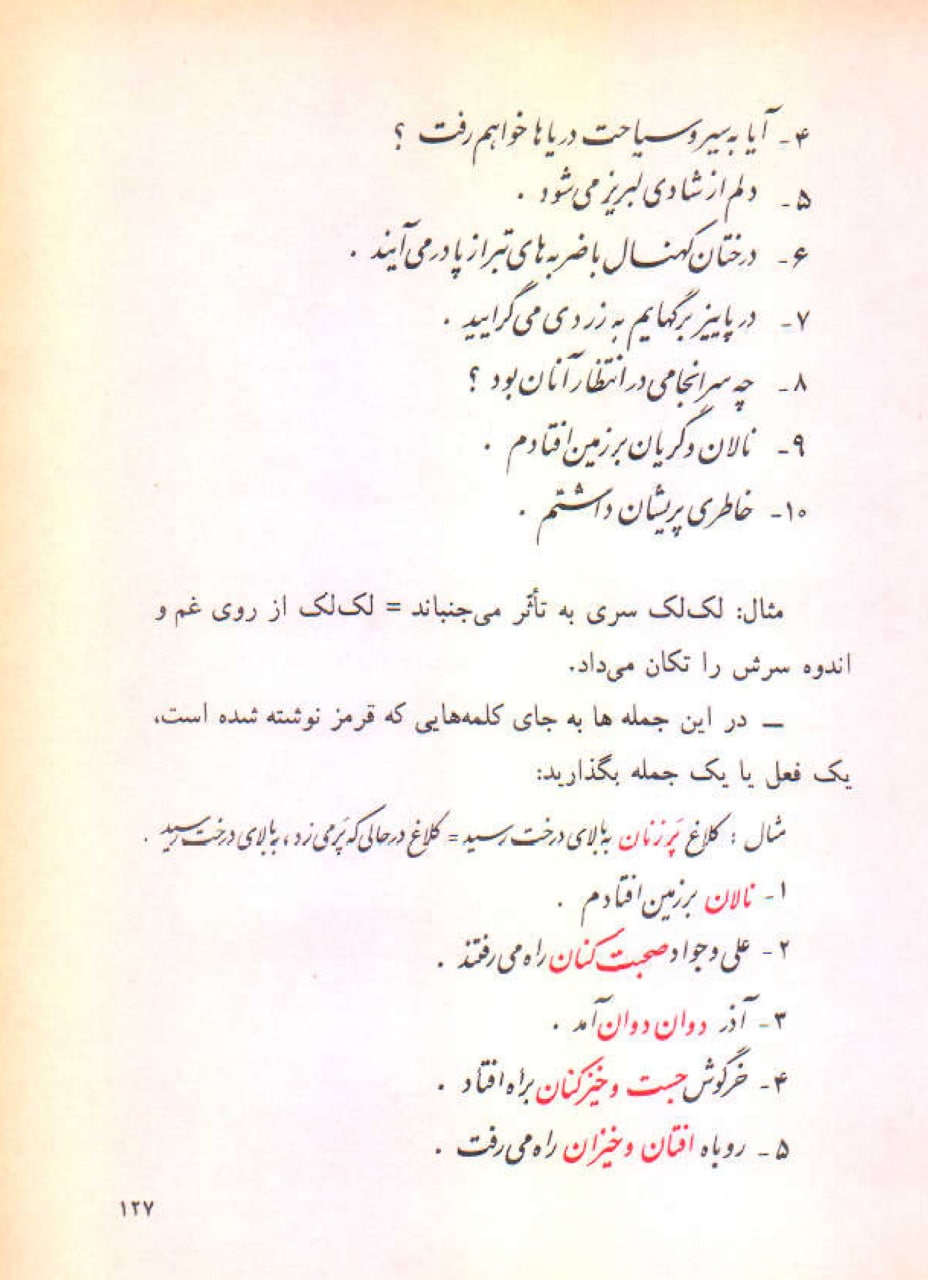 ۴- آیا به سیر و سیاحت دریاها خواهم رفت ؟
۵- دلم از شادی لبریز می‌شود .
۶- درختان کهنسال با ضربه‌های تبر از پا درمی‌آیند .
۷- در پاییز برگهایم به زردی می‌گرایید .
۸- چه سرانجامی در انتظار آنان بود ؟
۹- نالان و گریان بر زمین افتادم .
۱۰- خاطری پریشان داشتم .
مثال: لک‌لک سری به تأثّر می‌جنباند = لک‌لک از روی غم و
اندوه سرش را تکان می‌داد.
ــ در این جمله ها به جای کلمه‌هایی که قرمز نوشته شده است،
یک فعل یا یک جمله بگذارید:
مثال : کلاغ پَرزنان به بالای درخت رسید = کلاغ در حالی که پَر می‌زد ، به بالای درخت رسید .
۱- نالان بر زمین افتادم .
۲- علی و جواد صحبت کنان راه می‌رفتند .
۳- آذر دوان دوان آمد .
۴- خرگوش جست و خیز کنان براه افتاد .
۵- روباه افتان و خیزان راه می‌رفت .
۱۲۷